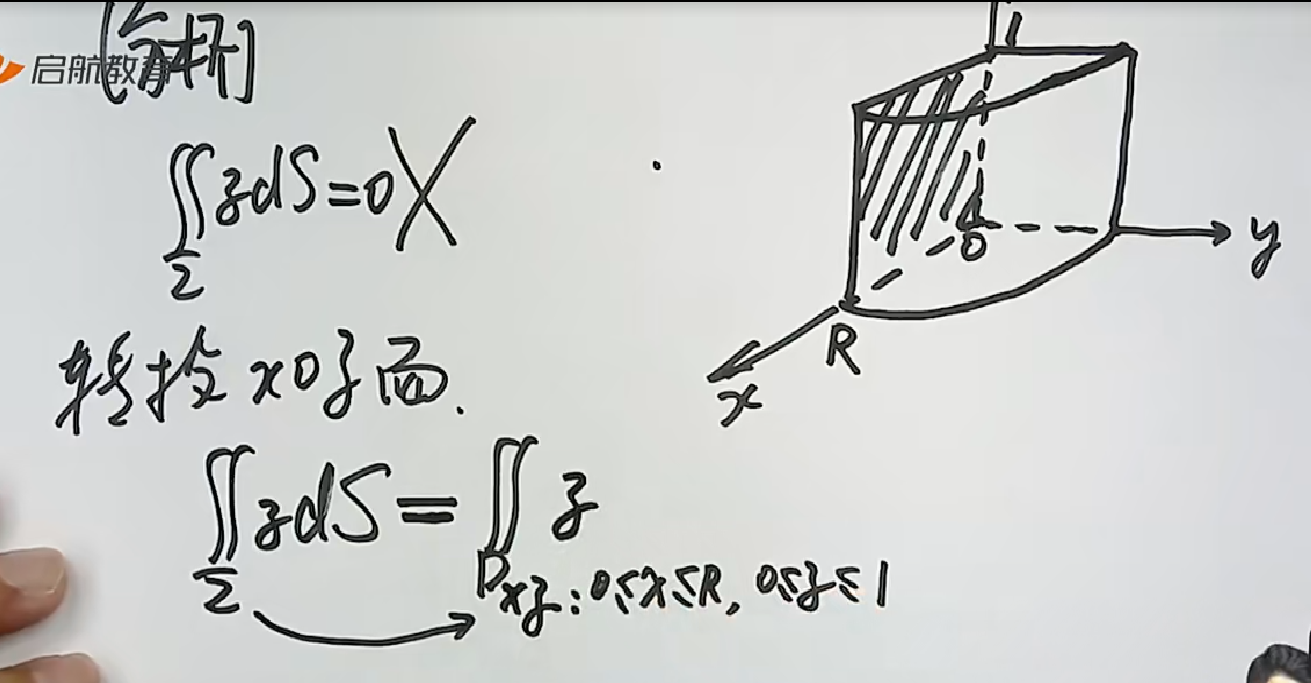 [分析]
启航教育
∬_Σ zdS=0 ╳
转投 xOz面.
∬_Σ zdS = ∬ z
D_xz: 0≤x≤R, 0≤z≤1
1
O
y
R
x